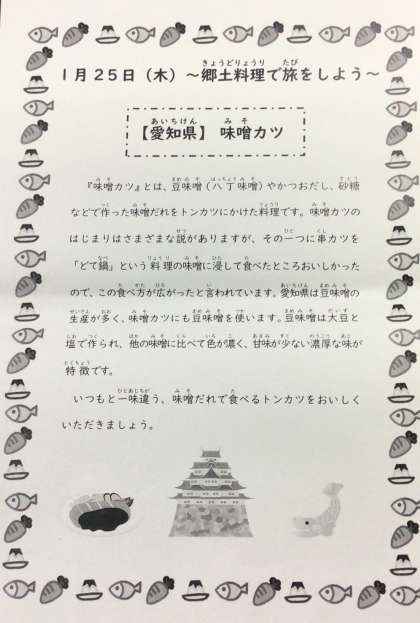 1月25日（木）～郷土料理で旅をしよう～
【愛知県】 味噌カツ
『味噌カツ』とは、豆味噌（八丁味噌）やかつおだし、砂糖
などで作った味噌だれをトンカツにかけた料理です。味噌カツの
はじまりはさまざまな説がありますが、その一つに串カツを
「どて鍋」という料理の味噌に浸して食べたところおいしかった
ので、この食べ方が広がったと言われています。愛知県は豆味噌の
生産が多く、味噌カツにも豆味噌を使います。豆味噌は大豆と
塩で作られ、他の味噌に比べて色が濃く、甘味が少ない濃厚な味が
特徴です。
いつもと一味違う、味噌だれで食べるトンカツをおいしく
いただきましょう。